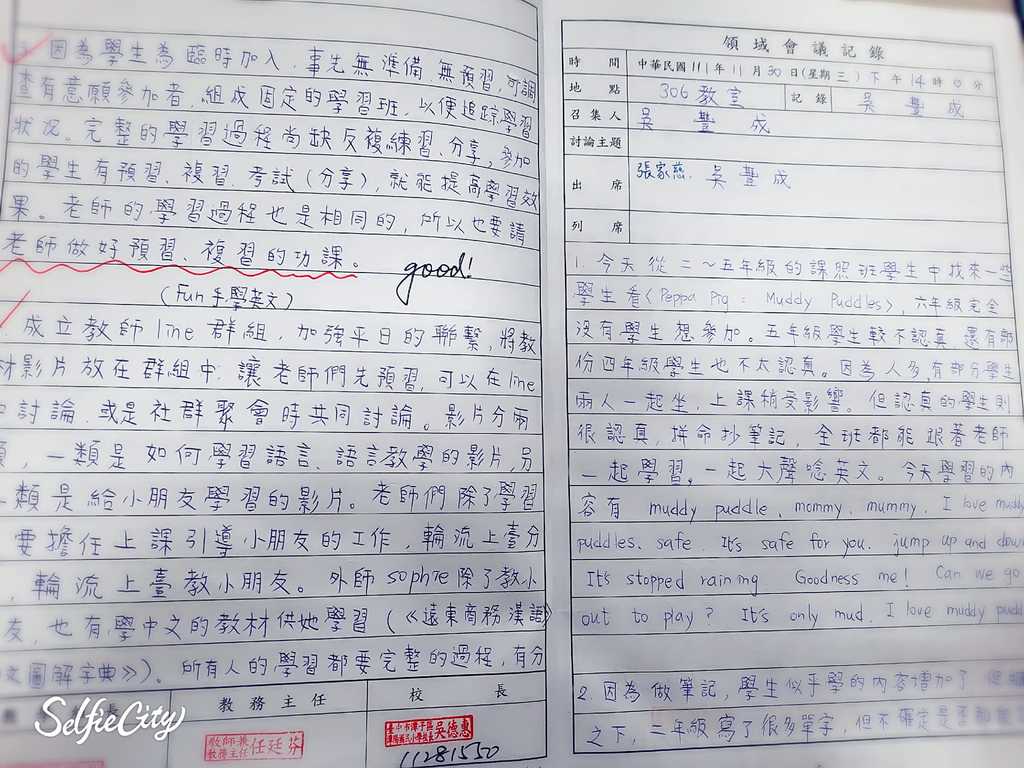 因為學生為臨時加入,事先無準備、無預習,可調
查有意願參加者,組成固定的學習班,以便追踪學習
狀況。完整的學習過程尚缺反複練習、分享,參加
的學生有預習、複習、考試(分享),就能提高學習效
果。老師的學習過程也是相同的,所以也要請
老師做好預習、複習的功課。
good!
(Fun手學英文)
成立教師line群組,加強平日的聯繫,將教
材影片放在群組中,讓老師們先預習,可以在line
討論,或是社群聚會時共同討論。影片分兩
類,一類是如何學習語言、語言教學的影片,另
類是給小朋友學習的影片。老師們除了學習
要擔任上課引導小朋友的工作,輪流上臺分
輪流上臺教小朋友。外師sophie除了教小
友,也有學中文的教材供她學習(《遠東商務漢語》
文圖解字典》)。所有人的學習都要完整的過程,有分
長
教務主任
校長
教師兼
教務主任 任廷芬
吳德惠
11281550
SelfieCity
領域會議記錄
時間 中華民國111年11月30日(星期三)下午14時0分
地點 306教室 記錄 吳豐成
召集人 吳豐成
討論主題
出席 張家慈、吳豐成
列席
1. 今天從二~五年級的課照班學生中找來一些
學生看〈Peppa Pig : Muddy Puddles〉,六年級完全
沒有學生想參加。五年級學生較不認真,還有部
份四年級學生也不太認真。因為人多,有部分學生
兩人一起坐,上課稍受影響。但認真的學生則
很認真,拼命抄筆記,全班都能跟著老師
一起學習,一起大聲唸英文。今天學習的內
容有 muddy puddle、mommy、mummy、I love muddy
puddles、safe、It's safe for you、jump up and down
It's stopped raining Goodness me! Can we go
out to play? It's only mud、I love muddy pudd
2. 因為做筆記,學生似乎學的內容增加了,但
之下,二年級寫了很多單字,但不確定是否都